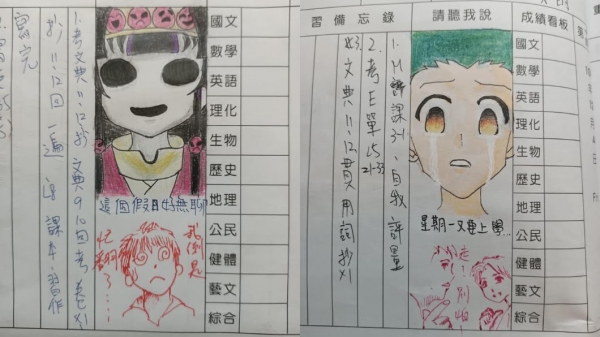 國文
數學
英語
理化
生物
歷史
地理
公民
健體
藝文
綜合
這個假日好無聊
我倒是
忙翻了...
1.考文典11、12抄 文典9、10回考卷x1
抄11、12回一遍
寫完
習備忘錄
請聽我說
成績看板
國文
數學
英語
理化
生物
歷史
地理
公民
健體
藝文
綜合
1.M講課3-1、自我評量
2.考E單15
21-33
x3.文典11、12貫用詞抄x1
星期一又要上學...
走!別怕